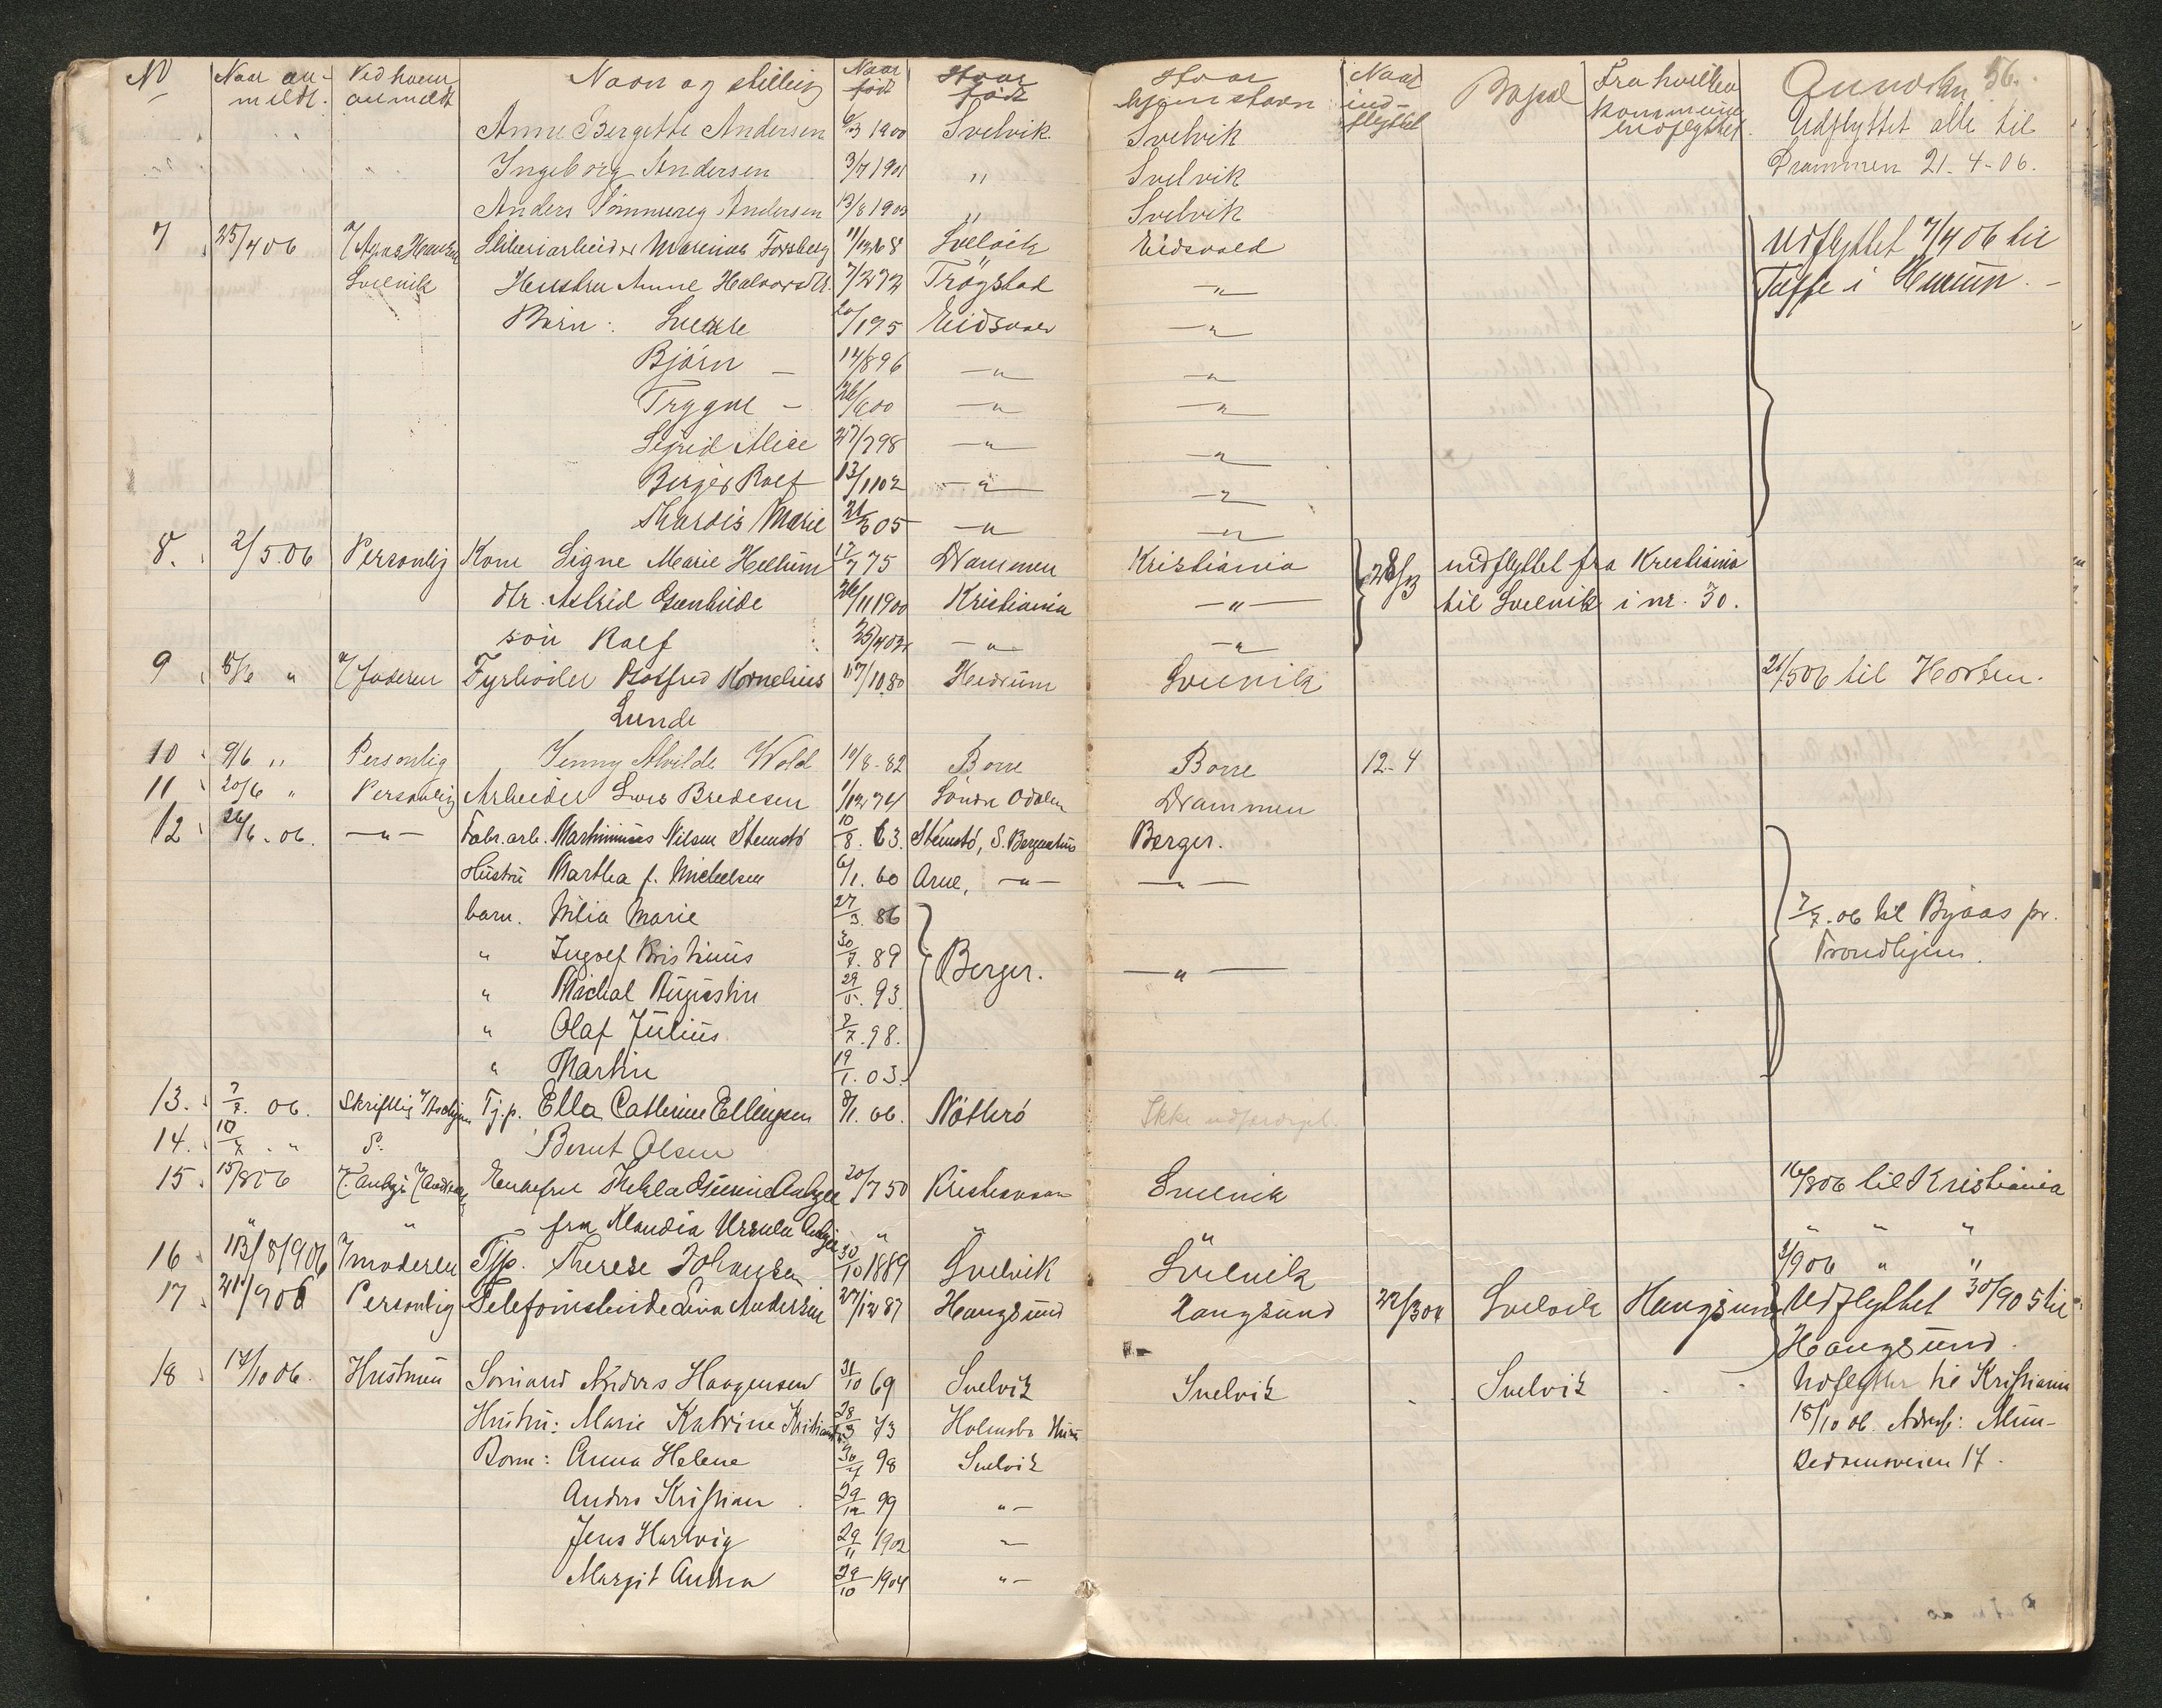 No Naar an- Ved hvem Navn og stilling Naar Hvor Hvor Naar Bopæl Fra hvilken Anmerkn. 56.
meldt. anmeldt født født hjemstavn ind- kommune
flyttet indflyttet.
Anne Bergette Andersen 1900 Svelvik Svelvik Udflyttet alle til
Ingeborg Andersen 3/7 1901 " Svelvik Drammen 21-4-06.
Anders Andersen 13/8 1903 " Svelvik
7 25/4 06 Sliberiarbeider Marinius Forsberg 11/12 68 Svelvik Eidsvold Udflyttet 7/4 06 til
Svelvik Hustru Anne Halvorsdtr. 7/2 72 Trøgstad -"- Tofte i Hurum. -
Børn: Sverre 20/1 95 Eidsvold -"-
Bjørn - 14/8 96 -"- -"-
Trygve - 26/6 00 -"- -"-
Sigrid Alice 27/7 98 -"- -"-
Birger Rolf 13/11 02 -"- -"-
Thordis Marie 21/3 05 -"- -"-
8. 2/5.06 Personlig Kone Signe Marie Hellum 17/7 75 Drammen Kristiania 28/3 indflyttet fra Kristiania
dtr. Astrid 26/11 1900 Kristiania -"- til Svelvik i nr. 30.
søn Rolf 25/4 02 -"- -"-
9 8/6 " v/ faderen Fyrbøder Gotfred Kornelius 17/10 80 Hurum Svelvik 21/5 06 til Horten.
Lunde
10 9/6 " Personlig Jenny Alvilde Wold 10/8-82 Borre Borre 12-4
11 20/6 " Personlig Arbeider Lars Bredesen 1/12 74 Søndr Odalen Drammen
12 26/6-06. -"- Fabr.arb. Martinius Nilsen Stemstø 10/8. 63. Stemstø, S. Bergenhus Berger.
Hustru Martha f. Michelsen 6/1. 60 Arne, -"- -"-
barn. Nilia Marie 27/3. 86
" Ingolf Kristinius 30/7. 89 Berger. -"- 7/7.06 til Byaas pr.
" Michal Augustin 29/5. 93. Trondhjem.
" Olaf Julius 7/7.98.
" Martin 19/1. 03.
13. 7/7. 06. Skriftlig Tj.p. Ella Cathrine Ellingsen 8/1. 66. Nøtterø Ikke udfærdiget.
14. 10/7. " P. Bernt Olsen
15 15/8 06 Enkefru Thekla 20/7 50 Kristianssand Svelvik 16/8 06 til Kristiania
" " - frk Klaudia Ursula " " " " " "
16 13/8/906 v/ moderen Tjp. Therese Johansen 30/10 1889 Svelvik Svelvik 3/9 06 " "
17 21/9 06 Personlig Telefonistinde Lina Andersen 27/12 87 Haugsund Haugsund 22/3 04 Svelvik Haugsund Udflyttet 30/9 05 til
Haugsund.
18 14/10 06. Hustruen Sømand Anders Haagensen 31/10 69 Svelvik Svelvik - Svelvik - - Udflyttet til Kristiania
Hustru: Marie Katrine 28/3 73 Holmsbo 18/10 06. Adresse: Mun-
Børn: Anna Helene 30/4 98 Svelvik kedamsveien 17.
Anders Kristian 29/12 99 "-
Jens Hartvig 29/11 1902 "-
Margit Andrea 29/10 1904 "-